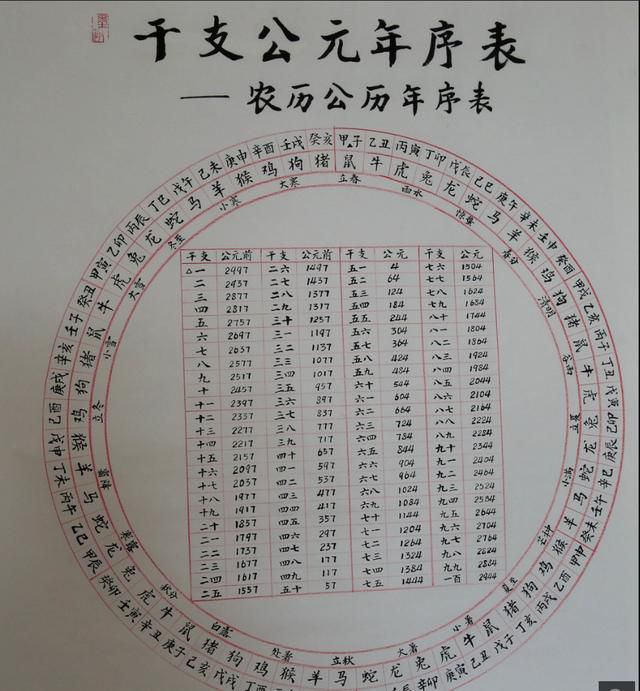 干支公元年序表
——农历公历年序表
甲子 乙丑 丙寅 丁卯 戊辰 己巳 庚午 辛未 壬申 癸酉 甲戌 乙亥 丙子 丁丑 戊寅 己卯 庚辰 辛巳 壬午 癸未 甲申 乙酉 丙戌 丁亥 戊子 己丑 庚寅
丁酉 戊戌 己亥 庚子 辛丑 壬寅 癸卯 甲辰 乙巳 丙午 丁未 戊申 己酉 庚戌 辛亥 壬子 癸丑 甲寅 乙卯 丙辰 丁巳 戊午 己未 庚申 辛酉 壬戌 癸亥
鼠 牛 虎 兔 龙 蛇 马 羊 猴 鸡 狗 猪 鼠 牛 虎 兔 龙 蛇 马 羊 猴 鸡 狗 猪 鼠 牛 虎 兔 龙 蛇 马 羊 猴 鸡 狗 猪 鼠 牛 虎 兔 龙 蛇 马 羊 猴 鸡 狗 猪 鼠 牛 虎 兔 龙 蛇 马 羊 猴 鸡 狗 猪
立春 雨水 惊蛰 春分 清明 谷雨 立夏 小满 芒种 夏至 小暑 大暑 立秋 处暑 白露 秋分 寒露 霜降 立冬 小雪 大雪 冬至 小寒 大寒
干支 公元前 干支 公元前 干支 公元 干支 公元
△一 2997 二六 1497 五一 4 七六 1504
二 2937 二七 1437 五二 64 七七 1564
三 2877 二八 1377 五三 124 七八 1624
四 2817 二九 1317 五四 184 七九 1684
五 2757 三十 1257 五五 244 八十 1744
六 2697 三一 1197 五六 304 八一 1804
七 2637 三二 1137 五七 364 八二 1864
八 2577 三三 1077 五八 424 八三 1924
九 2517 三四 1017 五九 484 八四 1984
十 2457 三五 957 六十 544 八五 2044
十一 2397 三六 897 六一 604 八六 2104
十二 2337 三七 837 六二 664 八七 2164
十三 2277 三八 777 六三 724 八八 2224
十四 2217 三九 717 六四 784 八九 2284
十五 2157 四十 657 六五 844 九十 2344
十六 2097 四一 597 六六 904 九一 2404
十七 2037 四二 537 六七 964 九二 2464
十八 1977 四三 477 六八 1024 九三 2524
十九 1917 四四 417 六九 1084 九四 2584
二十 1857 四五 357 七十 1144 九五 2644
二一 1797 四六 297 七一 1204 九六 2704
二二 1737 四七 237 七二 1264 九七 2764
二三 1677 四八 177 七三 1324 九八 2824
二四 1617 四九 117 七四 1384 九九 2884
二五 1557 五十 57 七五 1444 一百 2944